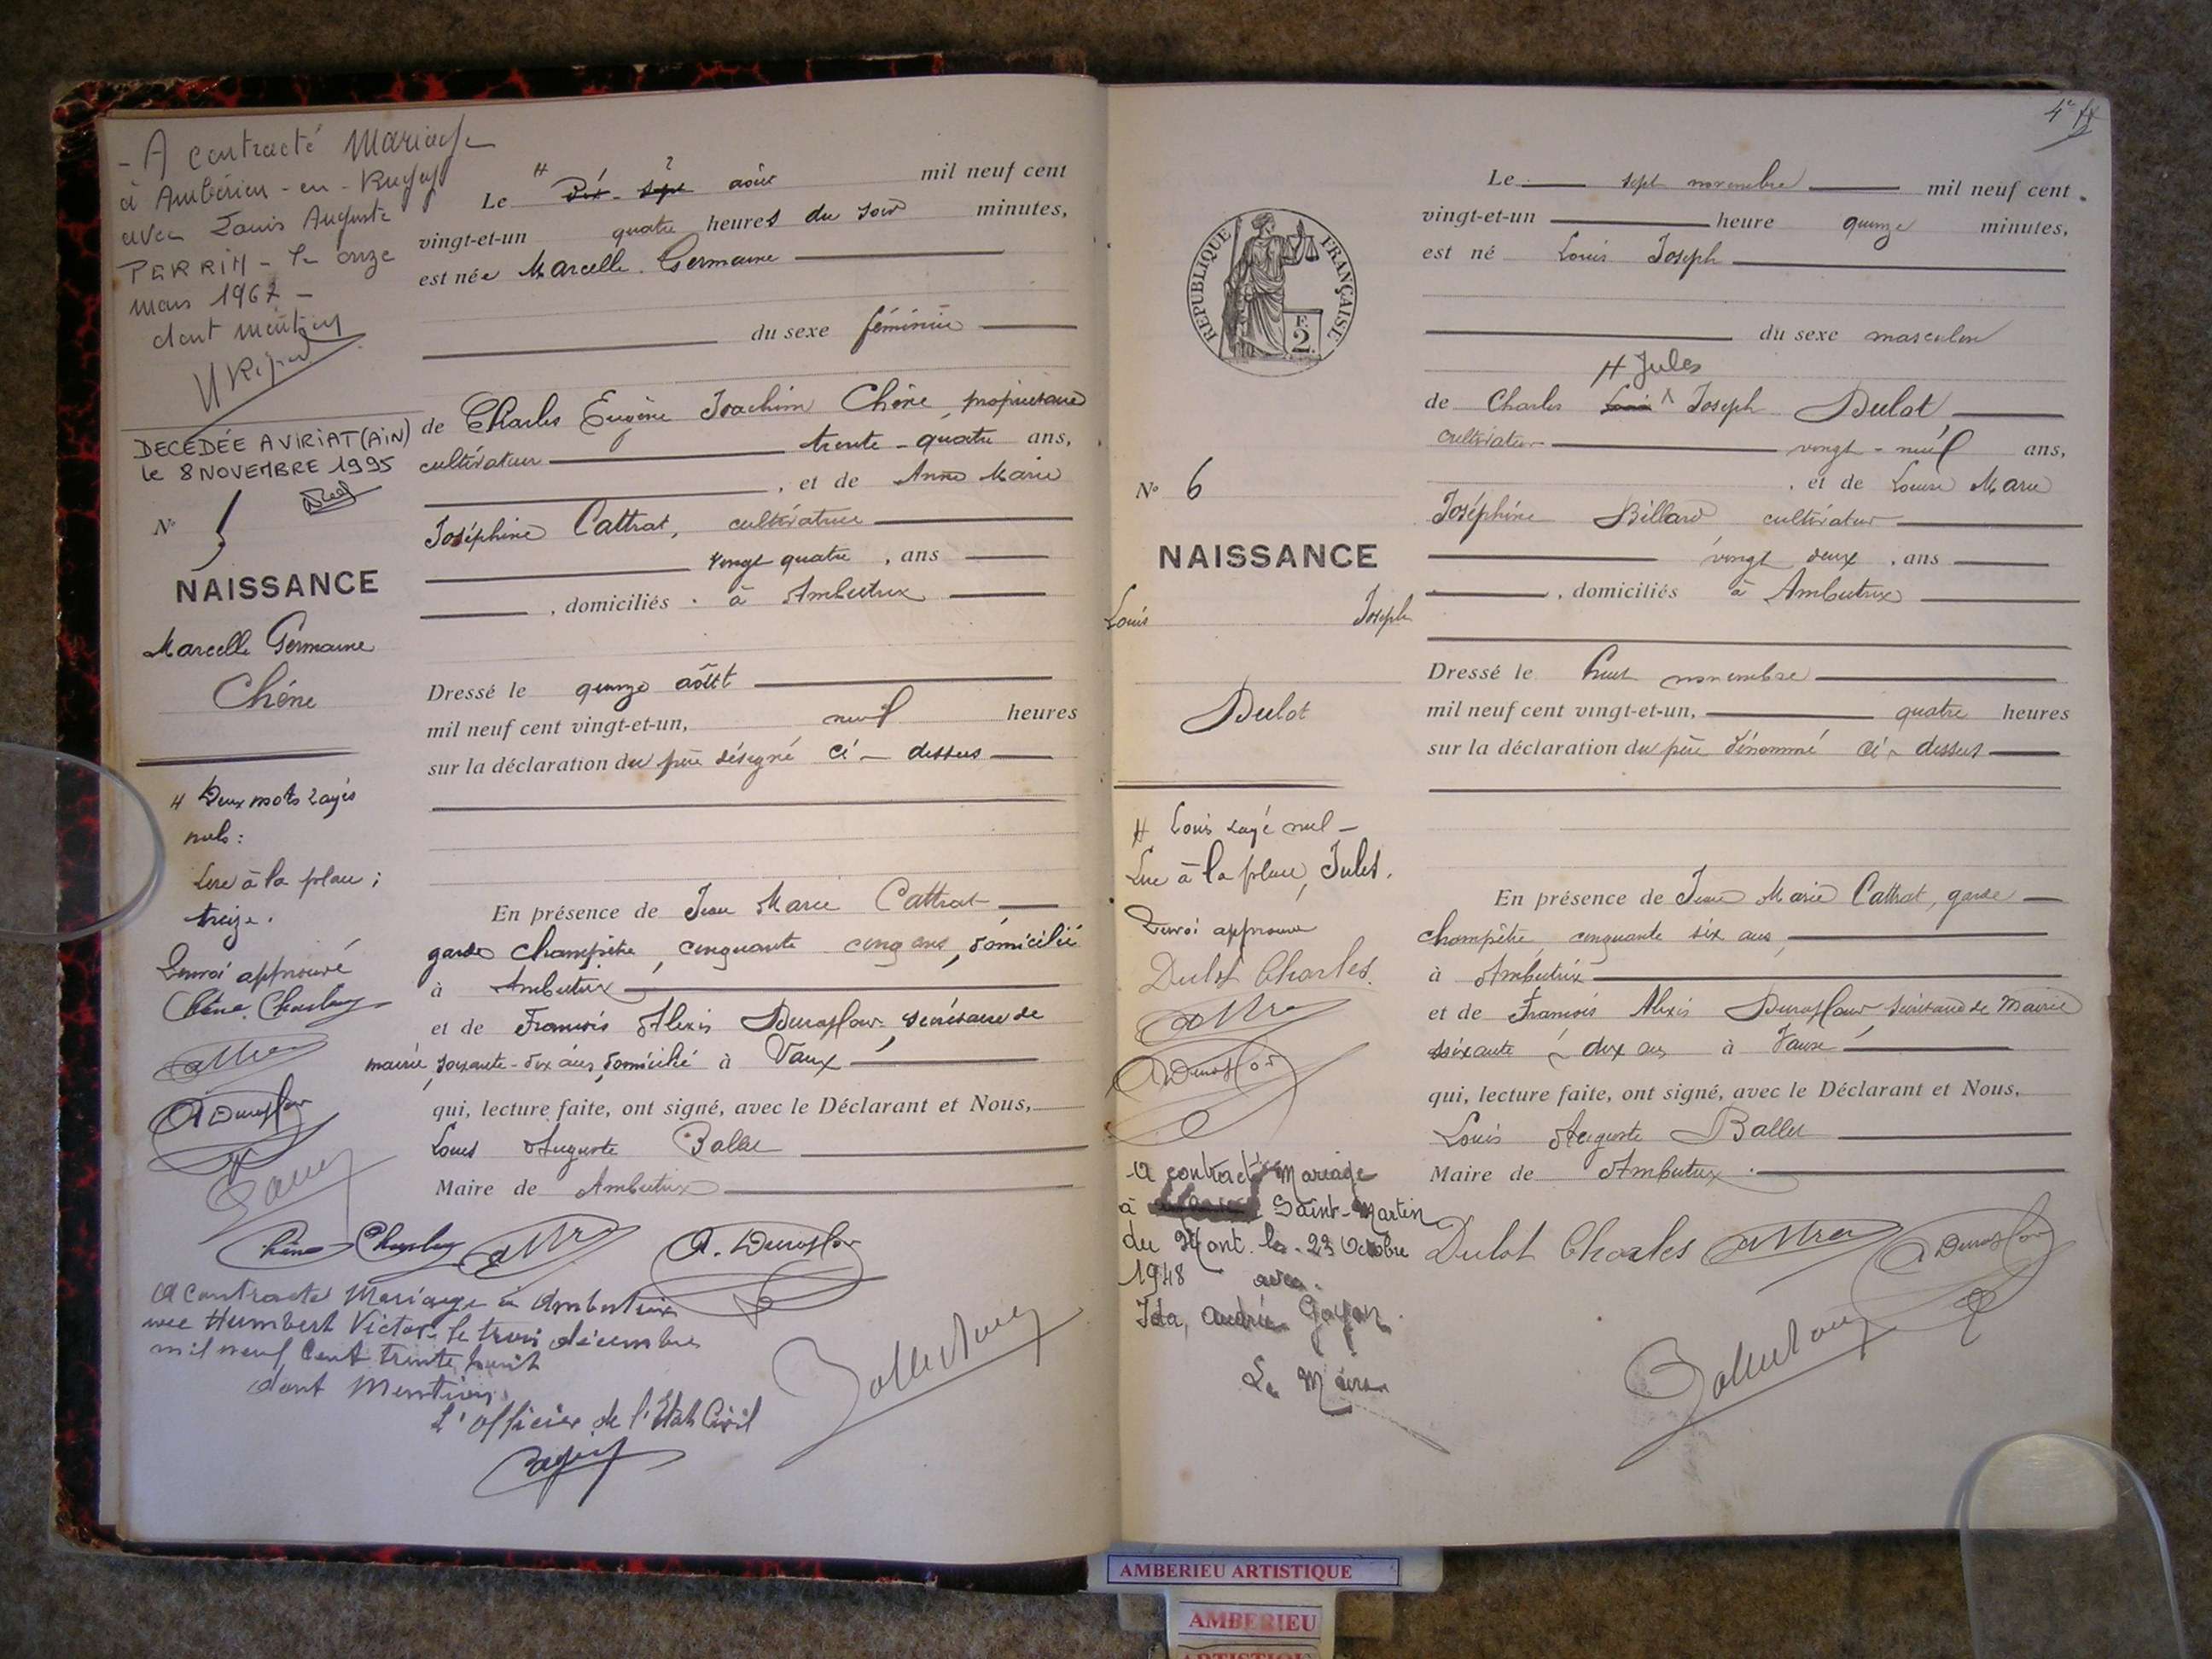 - A contracté Mariage
à Ambérieu-en-Bugey
avec Louis Auguste
PERRIN - le onze
mars 1967 -
dont mention
DECEDÉE A VIRIAT (AIN)
le 8 NOVEMBRE 1995
N° 5
NAISSANCE
Marcelle Germaine
Chêne
H Deux mots rayés
nuls :
Lire à la place ;
treize.
Renvoi approuvé
Chêne Charles
A Duraflour
H ?
Le Dix-sept août mil neuf cent
vingt-et-un quatre heures du soir minutes,
est née Marcelle Germaine
du sexe féminin
de Charles Eugène Joachim Chêne, propriétaire
cultivateur trente-quatre ans,
, et de Anne Marie
Joséphine Cattrat, cultivatrice
vingt quatre, ans
, domiciliés à Ambutrix
Dressé le quinze août
mil neuf cent vingt-et-un, neuf heures
sur la déclaration du père désigné ci-dessus
En présence de Jean Marie Cattrat
garde champêtre, cinquante cinq ans, domicilié
à Ambutrix
et de François Alexis Duraflour, secrétaire de
mairie, soixante-dix ans, domicilié à Vaux
qui, lecture faite, ont signé, avec le Déclarant et Nous,
Louis Auguste Ballet
Maire de Ambutrix
Chêne Charles A. Duraflour
A contracté Mariage à Ambutrix
avec Humbert Victor le trois décembre
mil neuf cent trente huit
dont Mention
L'officier de l'Etat Civil
4e fx
REPUBLIQUE FRANÇAISE
F.
2.
N° 6
NAISSANCE
Louis Joseph
Dulot
H Louis rayé nul -
Lire à la place, Jules.
Renvoi approuvé
Dulot Charles.
A Duraflour
A contracté Mariage
à Saint-Martin
du Mont le 23 Octobre
1948 avec
Ida, Andrée Goyon.
Le Maire
Le sept novembre mil neuf cent
vingt-et-un heure quinze minutes,
est né Louis Joseph
du sexe masculin
H Jules
de Charles Louis Joseph Dulot,
cultivateur vingt-neuf ans,
, et de Louise Marie
Joséphine Billard cultivateur
vingt deux, ans
, domiciliés à Ambutrix
Dressé le huit novembre
mil neuf cent vingt-et-un, quatre heures
sur la déclaration du père dénommé ci-dessus
En présence de Jean Marie Cattrat, garde
champêtre, cinquante six ans,
à Ambutrix
et de François Alexis Duraflour secrétaire de Mairie
soixante-dix ans à Vaux
qui, lecture faite, ont signé, avec le Déclarant et Nous,
Louis Auguste Ballet
Maire de Ambutrix
Dulot Charles A Duraflour
AMBERIEU ARTISTIQUE
AMBERIEU
ARTISTIQUE